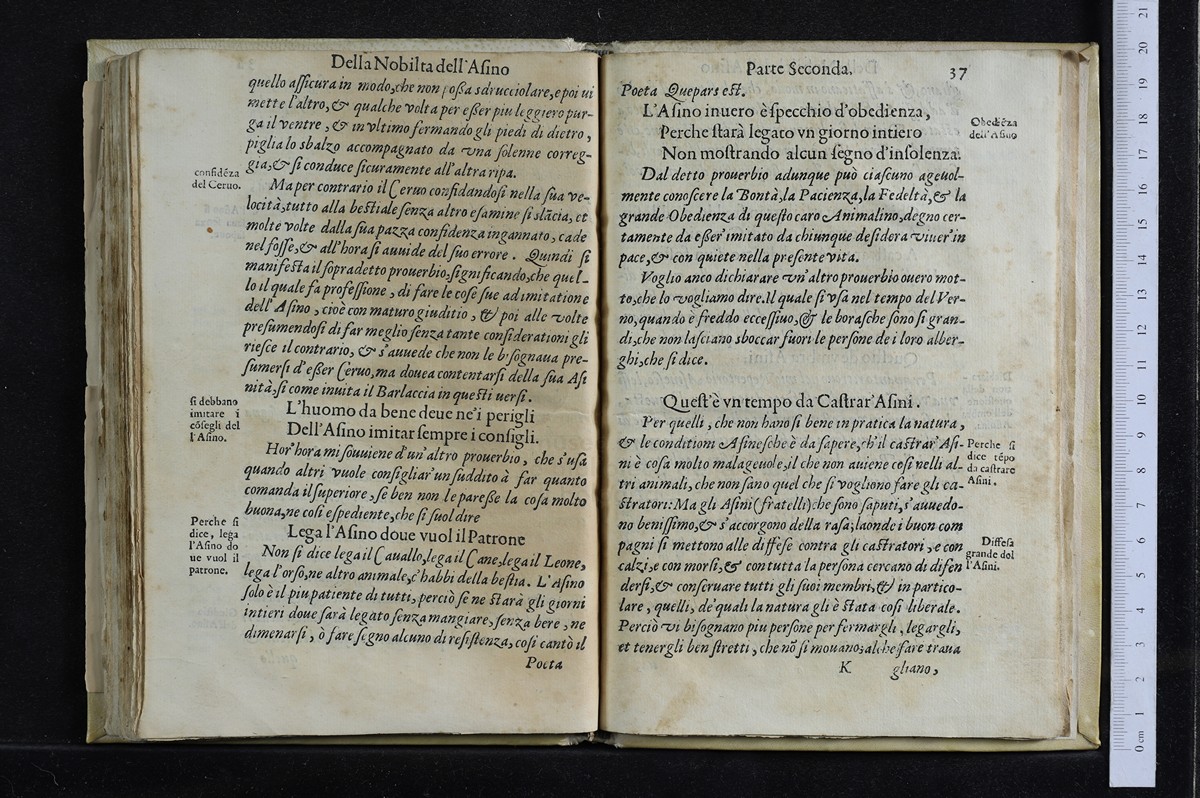 Della Nobilta dell'Asino
quello assicura in modo, che non possa sdrucciolare, e poi ui
mette l'altro, & qualche volta per eßer piu leggiero pur-
ga il ventre, & in vltimo fermando gli piedi di dietro,
piglia lo sbalzo accompagnato da vna solenne correg-
gia, & si conduce sicuramente all'altra ripa.
confidēza
del Ceruo.
Ma per contrario il Ceruo confidandosi nella sua ve-
locità, tutto alla bestiale senza altro esamine si slācia, et
molte volte dalla sua pazza confidenza ingannato, cade
nel fosse, & all'hora si auuide del suo errore. Quindi si
manifesta il sopradetto prouerbio, significando, che quel-
lo il quale fa professione, di fare le cose sue ad imitatione
dell'Asino, cioè con maturo giuditio, & poi alle volte
presumendosi di far meglio senza tante considerationi gli
riesce il contrario, & s'auuede che non le bisognaua pre-
sumersi d'eßer Ceruo, ma douea contentarsi della sua Asi
nità, si come inuita il Barlaccia in questi uersi.
si debbano
imitare i
cōsegli del
l'Asino.
L'huomo da bene deue ne'i perigli
Dell'Asino imitar sempre i consigli.
Hor'hora mi souuiene d'un'altro prouerbio, che s'usa
quando altri vuole consigliar'un suddito à far quanto
comanda il superiore, se ben non le pareße la cosa molto
buona, ne così espediente, che si suol dire
Perche si
dice, lega
l'Asino do
ue vuol il
patrone.
Lega l'Asino doue vuol il Patrone
Non si dice lega il Cauallo, lega il Cane, lega il Leone,
lega l'orso, ne altro animale, c'habbi della bestia. L'Asino
solo è il piu patiente di tutti, perciò se ne starà gli giorni
intieri doue sarà legato senza mangiare, senza bere, ne
dimenarsi, ò fare segno alcuno di resistenza, cosi cantò il
Poeta
Parte Seconda. 37
Poeta Quepars est.
L'Asino inuero è specchio d'obedienza,
Perche starà legato vn giorno intiero
Non mostrando alcun segno d'insolenza.
Obediēza
dell'Asino
Dal detto prouerbio adunque può ciascuno ageuol-
mente conoscere la Bontà, la Pacienza, la Fedeltà, & la
grande Obedienza di questo caro Animalino, degno cer-
tamente da eßer'imitato da chiunque desidera viuer'in
pace, & con quiete nella presente vita.
Voglio anco dichiarare vn'altro prouerbio ouero mot-
to, che lo vogliamo dire. Il quale si vsa nel tempo del Ver-
no, quando è freddo eccessiuo, & le borasche sono si gran-
di, che non lasciano sboccar fuori le persone de i loro alber-
ghi, che si dice.
Quest'è vn tempo da Castrar'Asini.
Per quelli, che non hano si bene in pratica la natura,
& le conditioni Asinesche è da sapere, ch'il castrar'Asi-
ni è cosa molto malageuole, il che non auiene cosi nelli al-
tri animali, che non sano quel che si vogliono fare gli ca-
stratori: Ma gli Asini (fratelli) che sono saputi, s'auuedo-
no benissimo, & s'accorgono della rasa; laonde i buon com
pagni si mettono alle diffese contra gli castratori, e con
calzi, e con morsi, & con tutta la persona cercano di difen
dersi, & conseruare tutti gli suoi membri, & in partico-
lare, quelli, de'quali la natura gli è stata cosi liberale.
Perciò vi bisognano piu persone per fermargli, legargli,
et tenergli ben stretti, che nō si mouano; alche fare traua
Perche si
dice tēpo
da castrare
Asini.
Diffesa
grande del
l'Asini.
K gliano,
0 cm 1 2 3 4 5 6 7 8 9 10 11 12 13 14 15 16 17 18 19 20 21